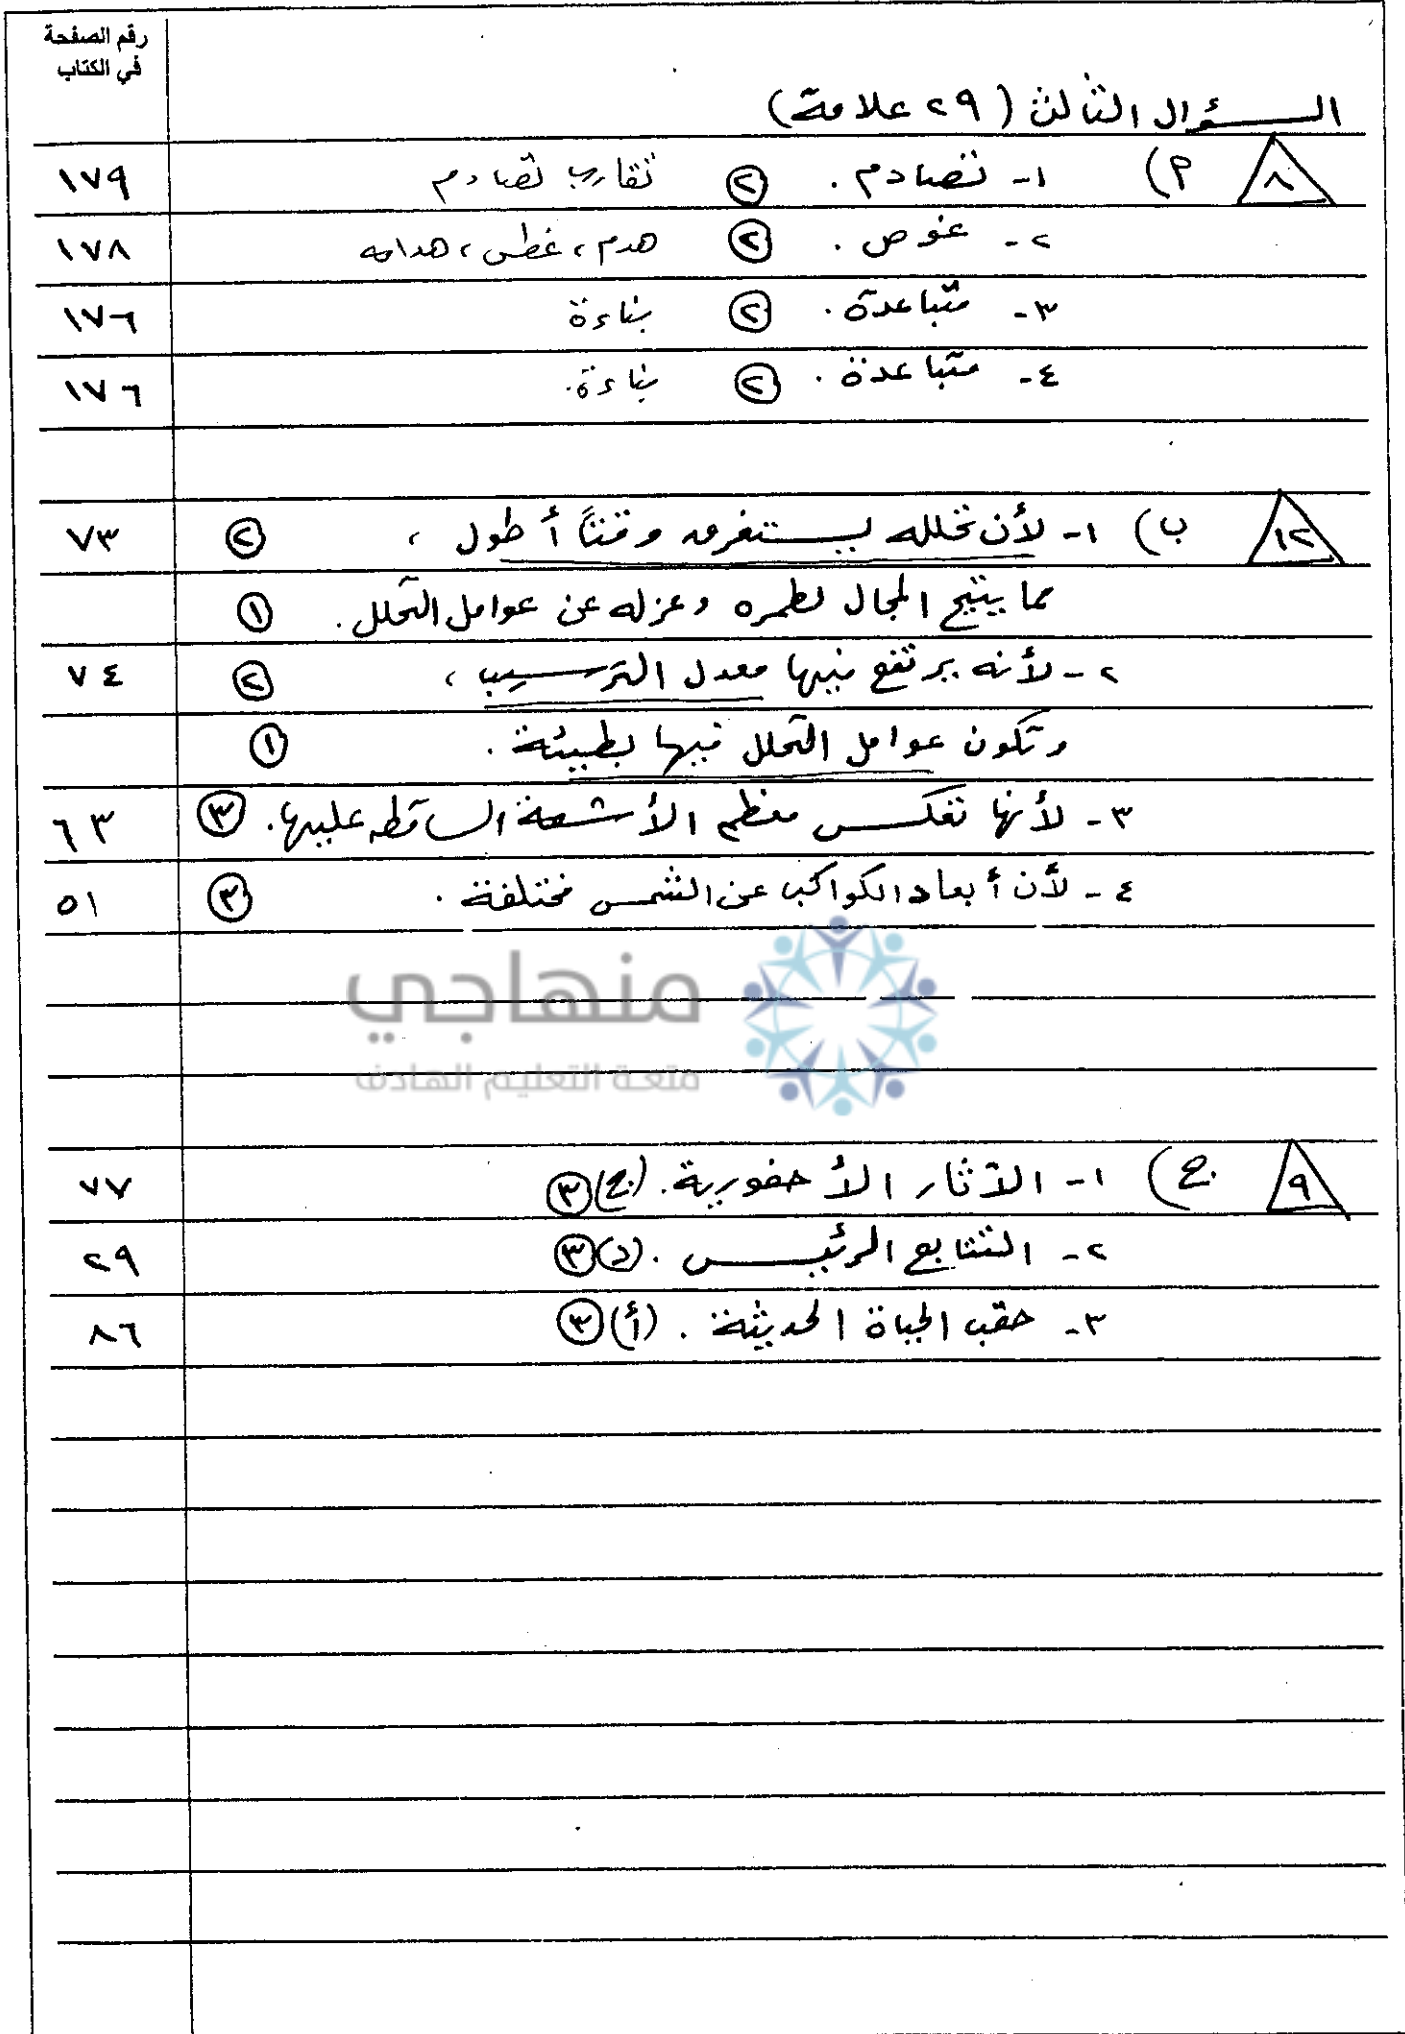 رقم الصفحة
في الكتاب
السؤال الثالث (٢٩ علامة)
٨ م) ١- تصادم. ٢ تقارب تصادم ١٧٩
٢- غوص. ٢ هدم، غطس، هدامه ١٧٨
٣- متباعدة. ٢ بناءة ١٧٦
٤- متباعدة. ٢ بناءة. ١٧٦
١٢ ب) ١- لأن تحلله يستغرق وقتاً أطول، ٢ ٧٣
مما يتيح المجال لطمره وعزله عن عوامل التحلل. ١
٢- لأنه يرتفع فيها معدل الترسيب، ٢ ٧٤
وتكون عوامل التحلل فيها بطيئة. ١
٣- لأنها تعكس معظم الأشعة الساقطه عليها. ٣ ٦٣
٤- لأن أبعاد الكواكب عن الشمس مختلفة. ٣ ٥١
منهاجي
متعة التعليم الهادف
٩ ج) ١- الآثار الأحفورية. (ج) ٣ ٧٧
٢- التتابع الرئيس. (د) ٣ ٢٩
٣- حقب الحياة الحديثة. (أ) ٣ ٨٦